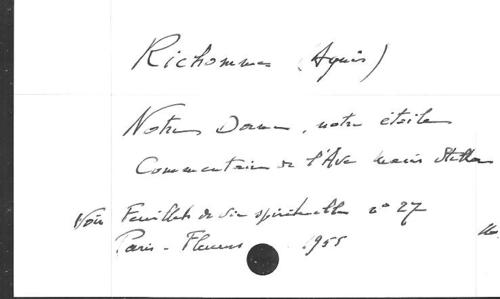 Richomme (Agnès)
Notre Dame, notre étoile
Commentaire de l'Ave Maris Stella
Voir Feuillets de vie spirituelle n° 27
Paris - Fleurus 1955